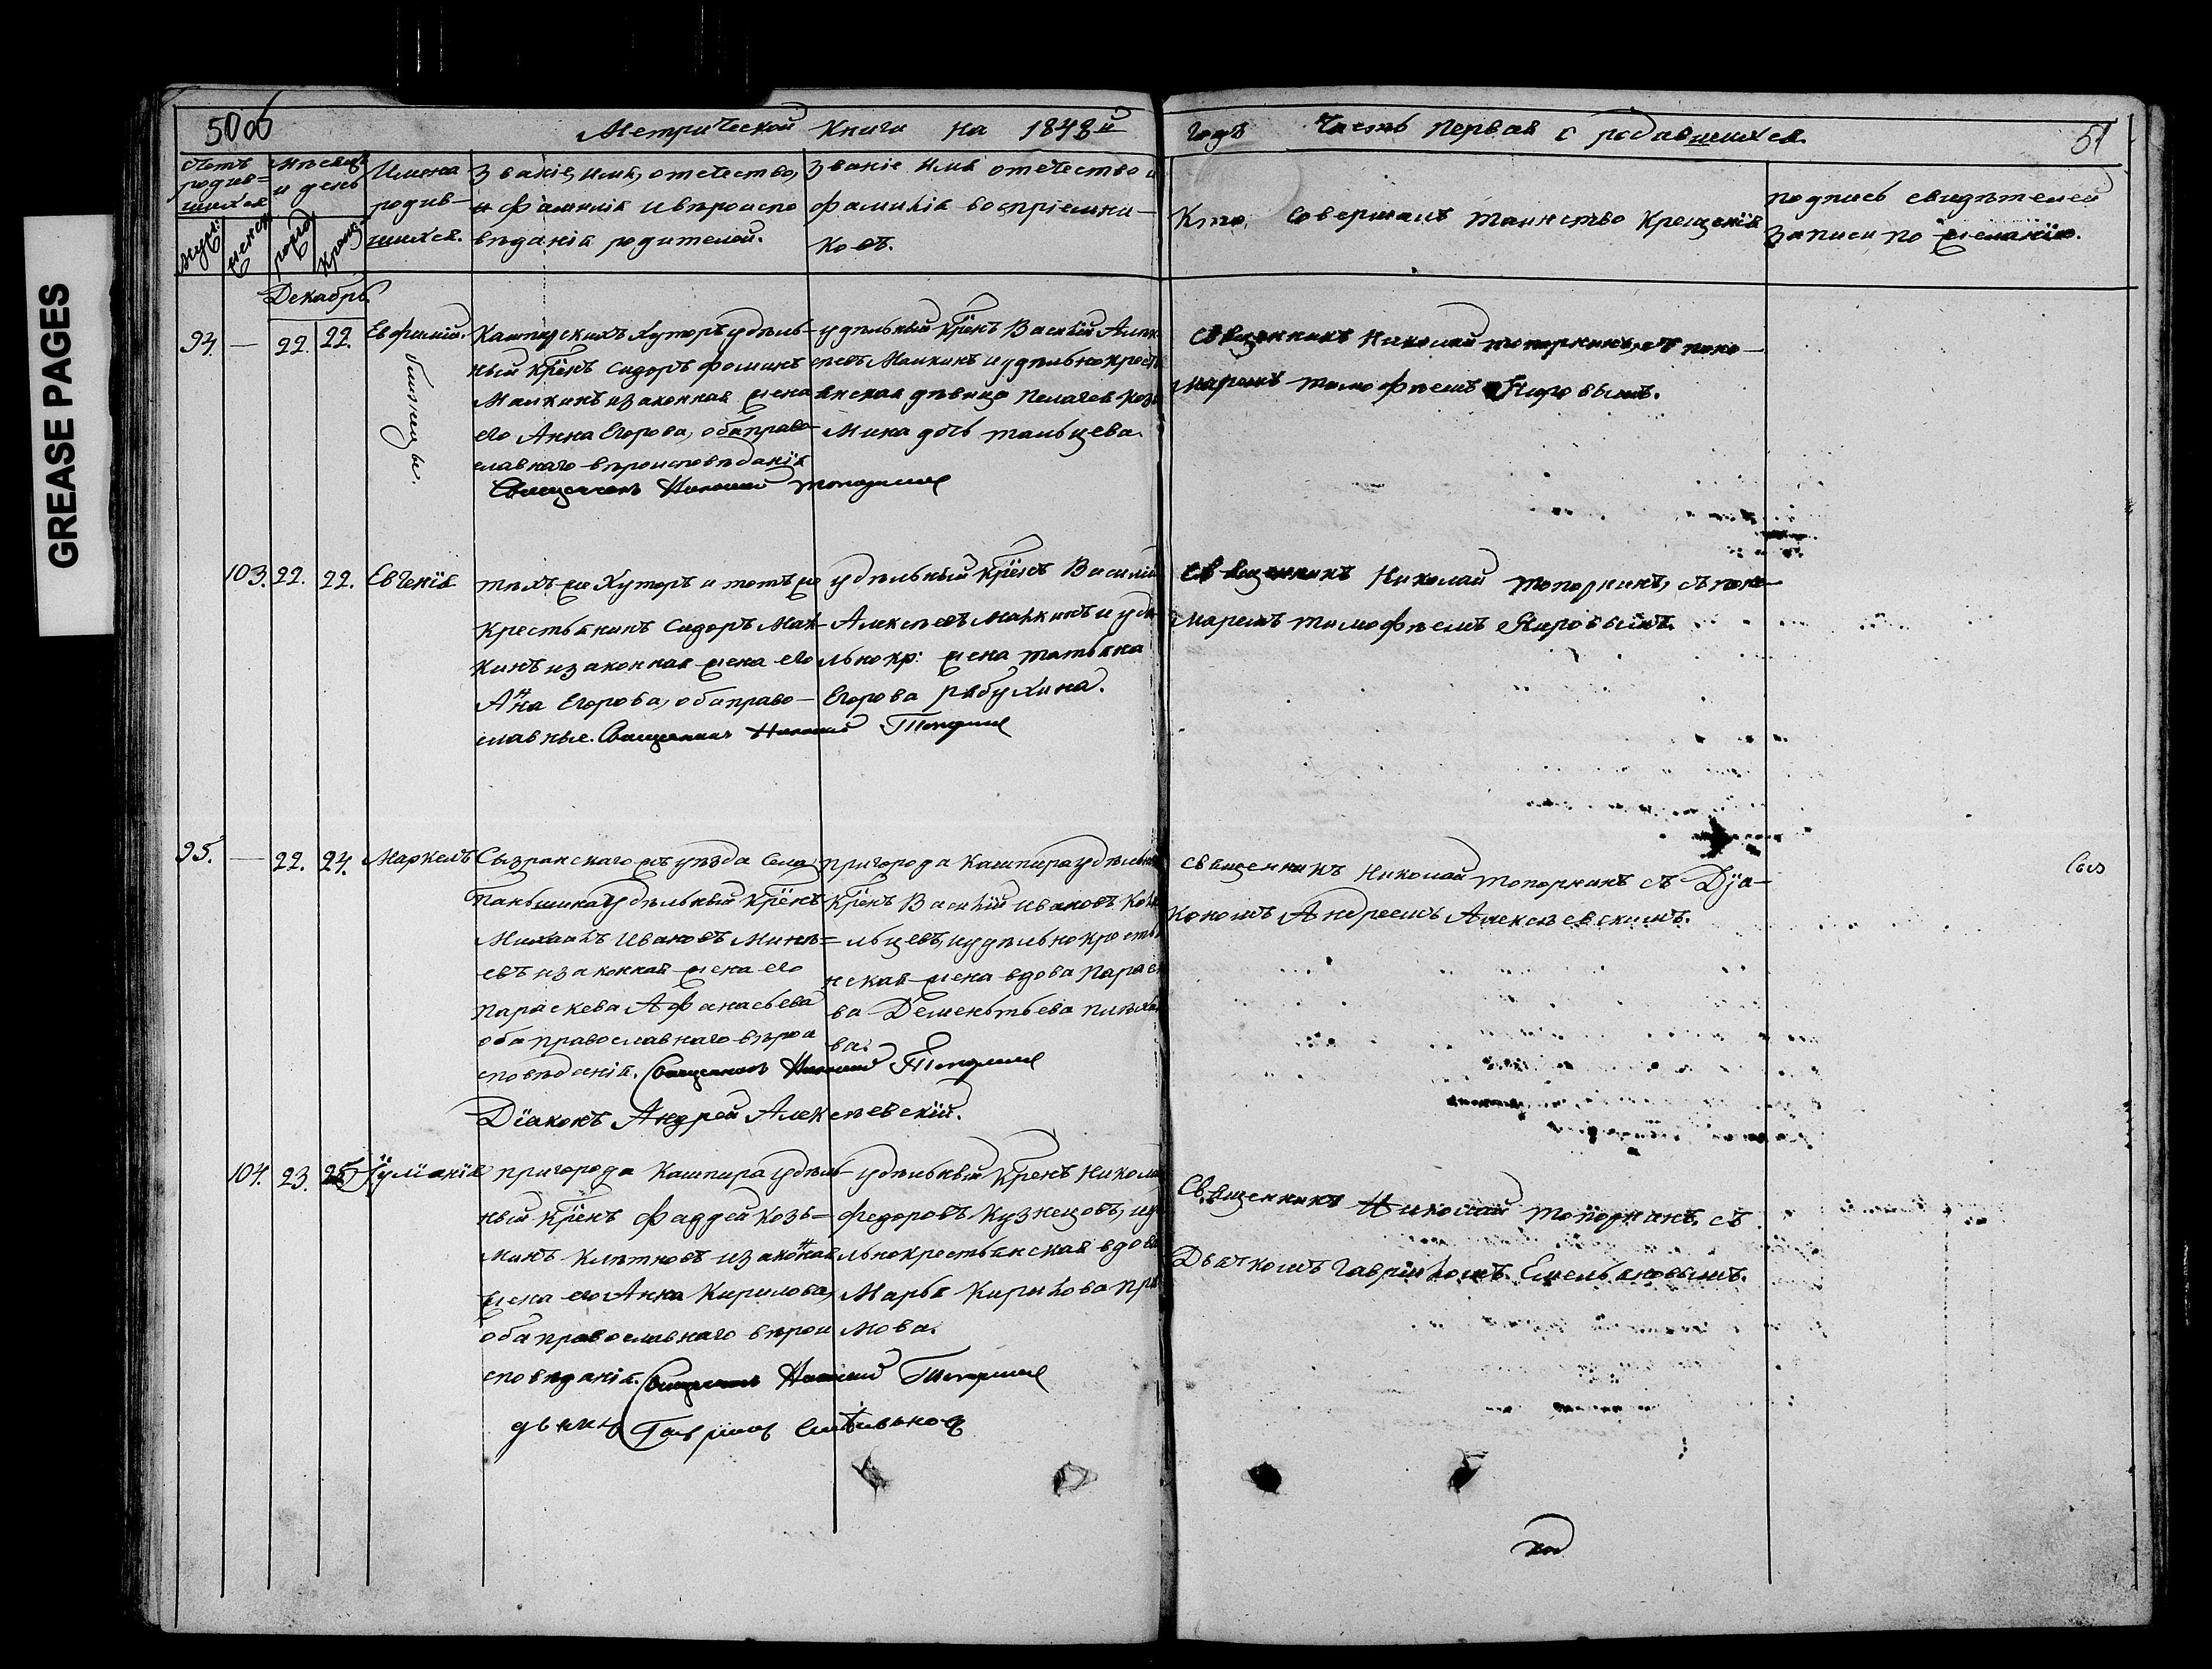 GREASE PAGES
50об
Метрической книги на 1848й
годъ Часть первая о родившихся.
51
Щетъ родив=
шихся
муж:
женск
Мѣсяцъ
и день
рожд
крещ
Имена
родив-
шихся.
Званіе, имя, отечество,
и фамилія и вѣроиспо
вѣданія родителей.
Званіе имя отечество и
фамилія воспріемни-
ковъ.
Кто совершалъ таинство крещенія
подпись свидѣтелей
записи по желанію.
Декабрь.
94. — 22. 22. Евфимій.
близнецы.
Кашпурскихъ Хуторъ удѣль-
ный крѣнъ Сидоръ Фоминъ
Малкинъ и законная жена
его Анна Егорова, оба право-
славнаго вѣроисповѣданія
Священникъ Николай Топорнинъ
удѣльный крѣнъ Василій Алек
сѣевъ Малкинъ и удѣльнокресть
янская дѣвица Пелагея Козь
мина дочь Тальцева.
Священникъ Николай Топорнинъ, съ поно-
маремъ Тимофѣемъ
103. 22. 22. Евгенія
тѣхъ же Хуторъ и тотъ же
крестьянинъ Сидоръ Мал-
кинъ и законная жена его
Анна Егорова, оба право-
славные. Священникъ Николай Топорнинъ
удѣльный крѣнъ Василій
Алексѣевъ Малкинъ и удѣ
льнокр: жена Татьяна
Егорова Рябухина.
Священникъ Николай Топорнинъ, съ поно-
маремъ Тимофѣемъ
95. — 22. 24. Маркелъ
Сызранскаго жъ уѣзда села
Паньшина удѣльный крѣнъ
Михаилъ Ивановъ Минѣ=
евъ и законная жена его
Параскева Афанасьева
оба православнаго вѣрои
сповѣданія. Священникъ Николай Топорнинъ
Діаконъ Андрей Алексѣевскій.
пригорода Кашпира удѣльный
крѣнъ Василій Ивановъ
льцевъ, и удѣльнокрестья
нская жена вдова Параске
ва Дементьева
ва.
Священникъ Николай Топорнинъ съ Дїа-
кономъ Андреемъ Алексѣевскимъ.
104. 23. 25. Іуліанія
пригорода Кашпира удѣль-
ный крѣнъ Фаддей Козь=
минъ Клѣтновъ и законная
жена его Анна Кирилова,
оба православнаго вѣрои
сповѣданія. Священникъ Николай Топорнинъ
дьячекъ Гаврилъ Емельяновъ
удѣльный крѣнъ Николай
Федоровъ Кузнецовъ, и удѣ
льнокрестьянская вдова
Марья Кирилова
мова.
Священникъ Николай Топорнинъ, съ
Дьячкомъ Гавріиломъ Емельяновымъ.